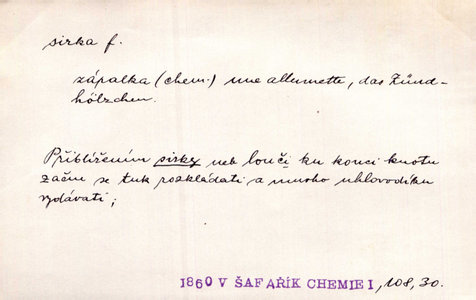 sirka f.
zápalka (chem.) une allumette, das Zünd-
hölzchen.
Přiblížením sirky neb loučí ku konci knotu
začne se tuk rozkládati a mnoho uhlovodíku
vydávati;
1860 V ŠAFAŘÍK CHEMIE I, 108, 30.